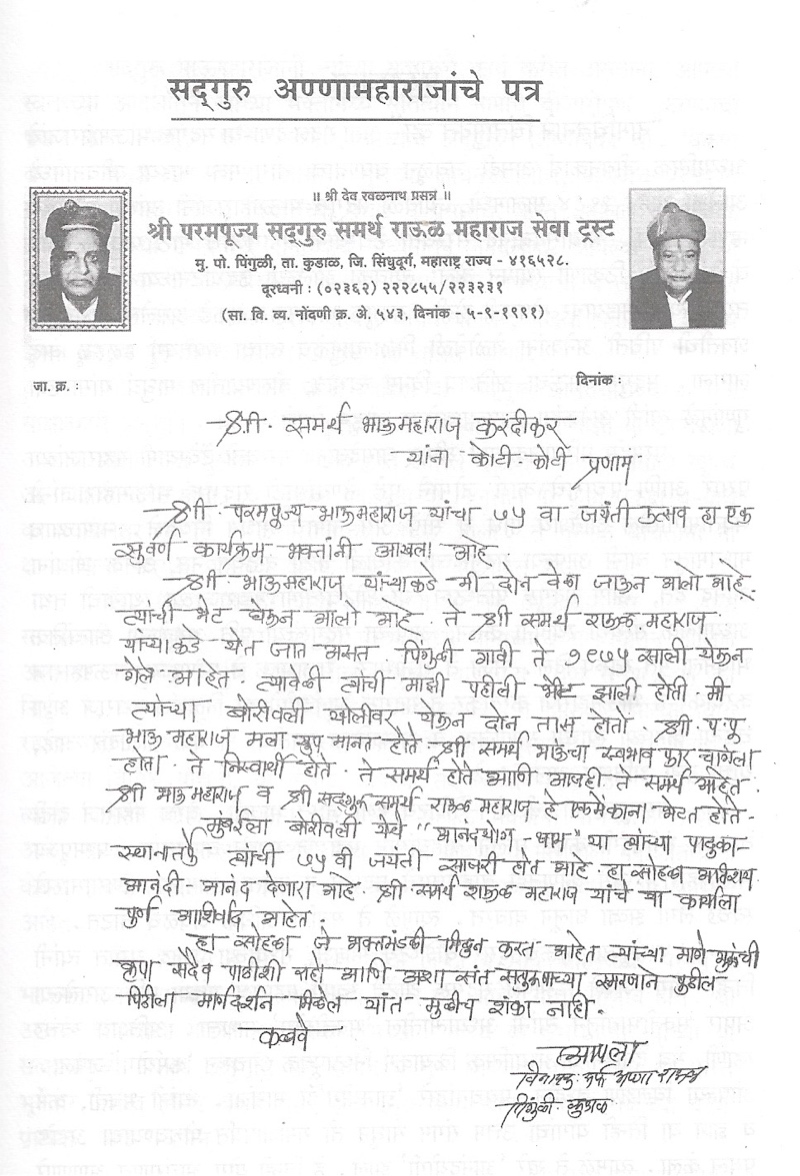 सद्गुरु अण्णामहाराजांचे पत्र
॥ श्री देव रवळनाथ प्रसन्न ॥
श्री परमपूज्य सद्गुरु समर्थ राऊळ महाराज सेवा ट्रस्ट
मु. पो. पिंगुळी, ता. कुडाळ, जि. सिंधुदूर्ग, महाराष्ट्र राज्य - ४१६५२८.
दूरध्वनी : (०२३६२) २२२८५५/२२३२३१
(सा. वि. व्य. नोंदणी क्र. ओ. ५४३, दिनांक - ५-९-१९९१)
जा. क्र. :
दिनांक :
श्री. समर्थ भाऊमहाराज करंदीकर
यांना कोटी-कोटी प्रणाम
श्री. परमपूज्य भाऊमहाराज यांचा ७५ वा जयंती उत्सव हा एक
सुवर्ण कार्यक्रम भक्तांनी आखला आहे
श्री. भाऊमहाराज यांच्याकडे मी दोन वेळा जाऊन आलो आहे.
त्यांची भेट घेऊन आलो आहे. ते श्री समर्थ राऊळ महाराज
यांच्याकडे येत जात असत. पिंगुळी गावी ते १९७५ साली येऊन
गेले आहेत. त्यावेळी त्यांची माझी पहीली भेट झाली होती. मी
त्यांच्या बोरीवली खोलीवर येऊन दोन तास होतो. श्री. प. पू.
भाऊ महाराज मला खुप मानत होते. श्री समर्थ भाऊंचा स्वभाव फार चांगला
होता. ते निस्वार्थी होते. ते समर्थ होते आणि आजही ते समर्थ आहेत.
श्री भाऊ महाराज व श्री सद्गुरु समर्थ राऊळ महाराज हे एकमेकांना भेटत होते.
मुंबईला बोरीवली येथे "आनंदयोग-धाम" या त्यांच्या पादुका-
स्थानातर्फे त्यांची ७५ वी जयंती साजरी होत आहे. हा सोहळा अतिशय
आनंदी आनंद देणारा आहे. श्री समर्थ राऊळ महाराज यांचे या कार्याला
पुर्ण आशिर्वाद आहेत
हा सोहळा जे भक्तमंडळी मिळून करत आहेत त्यांच्या मागे गुरूंची
कृपा सदैव पाठीशी राहो आणि अशा संत सतपुरुषाच्या स्मरणाने पुढील
पिढीला मार्गदर्शन मिळेल यांत मुळीच शंका नाही.
कळावे
आपला
विनायक उर्फ अण्णा राऊळ
पिंगुळी-कुडाळ